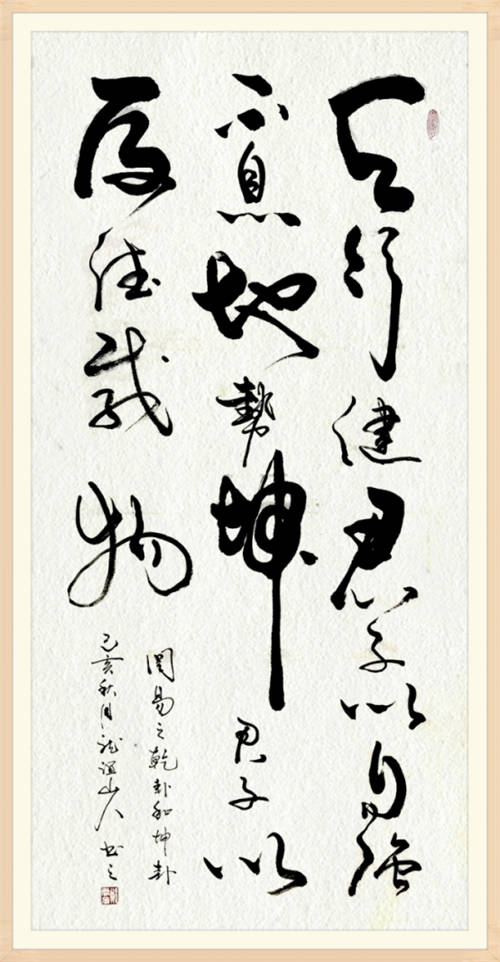 天行健君子以自強
不息地勢坤君子以
厚德載物
周易之乾卦和坤卦
己亥秋月山人书之